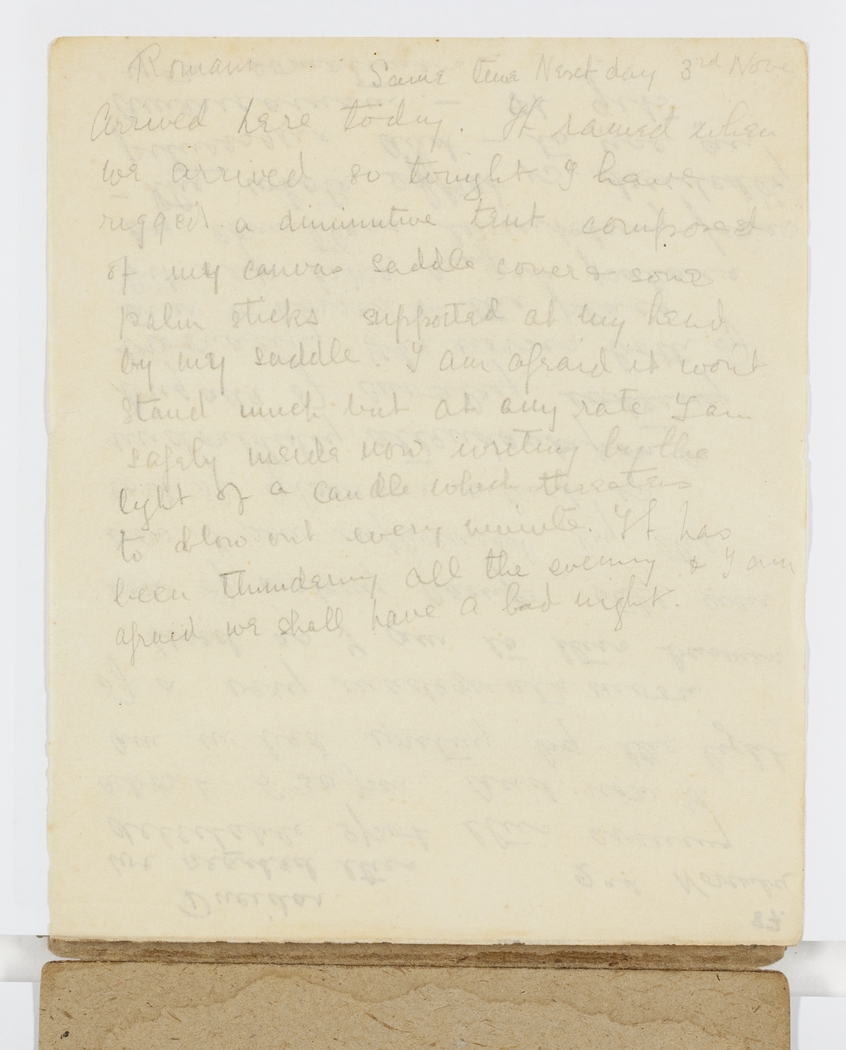 Romani Same time Next day 3rd Nov
Arrived here today. It rained when
we arrived so tonight I have
rigged a diminutive tent composed
of my canvas saddle cover & some
palm sticks supported at my head
by my saddle. I am afraid it won't
stand much but at any rate I am
safely inside now writing by the
light of a candle which threatens
to blow out every minute. It has
been thundering all the evening & I am
afraid we shall have a bad night.